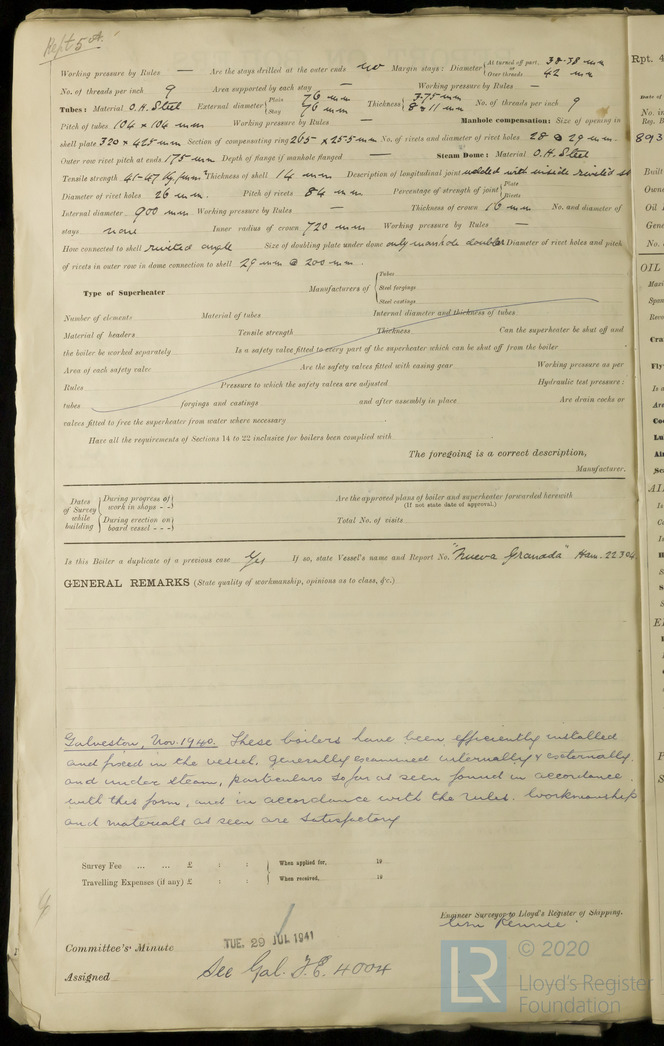 Rept 5A.
Working pressure by Rules — Are the stays drilled at the outer ends no Margin stays: Diameter { At turned off part, 38-38 mm or Over threads 42 mm
No. of threads per inch 9 Area supported by each stay — Working pressure by Rules —
Tubes: Material O.H. Steel External diameter { Plain 76 mm Stay 76 mm Thickness { 3.75 mm 8 & 11 mm No. of threads per inch 9
Pitch of tubes 104 x 104 mm Working pressure by Rules — Manhole compensation: Size of opening in
shell plate 320 x 425 mm Section of compensating ring 265 x 25.5 mm No. of rivets and diameter of rivet holes 28 @ 29 mm
Outer row rivet pitch at ends 175 mm Depth of flange if manhole flanged — Steam Dome: Material O.H. Steel
Tensile strength 41-47 kg/mm² Thickness of shell 14 mm Description of longitudinal joint welded with inside riveted
Diameter of rivet holes 26 mm. Pitch of rivets 84 mm Percentage of strength of joint { Plate Rivets
Internal diameter 900 mm Working pressure by Rules — Thickness of crown 16 mm No. and diameter of
stays none Inner radius of crown 720 mm Working pressure by Rules —
How connected to shell riveted angle Size of doubling plate under dome only manhole doubler Diameter of rivet holes and pitch
of rivets in outer row in dome connection to shell 29 mm @ 200 mm
Type of Superheater Manufacturers of { Tubes Steel forgings Steel castings
Number of elements Material of tubes Internal diameter and thickness of tubes
Material of headers Tensile strength Thickness Can the superheater be shut off and
the boiler be worked separately Is a safety valve fitted to every part of the superheater which can be shut off from the boiler
Area of each safety valve Are the safety valves fitted with easing gear Working pressure as per
Rules Pressure to which the safety valves are adjusted Hydraulic test pressure:
tubes forgings and castings and after assembly in place Are drain cocks or
valves fitted to free the superheater from water where necessary
Have all the requirements of Sections 14 to 22 inclusive for boilers been complied with
The foregoing is a correct description,
Manufacturer.
Dates of Survey while building { During progress of work in shops - - { During erection on board vessel - - -
Are the approved plans of boiler and superheater forwarded herewith
(If not state date of approval.)
Total No. of visits
Is this Boiler a duplicate of a previous case Yes If so, state Vessel's name and Report No. "Nueva Granada" Ham. 22304
GENERAL REMARKS (State quality of workmanship, opinions as to class, &c.)
Galveston, Nov. 1940. These boilers have been efficiently installed
and fixed in the vessel, generally examined internally & externally,
and under steam, particulars so far as seen found in accordance
with this form, and in accordance with the rules. Workmanship
and materials as seen are satisfactory
Survey Fee ... ... £ : : When applied for, 19
Travelling Expenses (if any) £ : : When received, 19
Engineer Surveyor to Lloyd's Register of Shipping.
Wm Rennie
Committee's Minute TUE. 29 JUL 1941
Assigned See Gal. F.E. 4004
© 2020
LR
Lloyd's Register
Foundation
Rpt. 4
893
Built
OIL